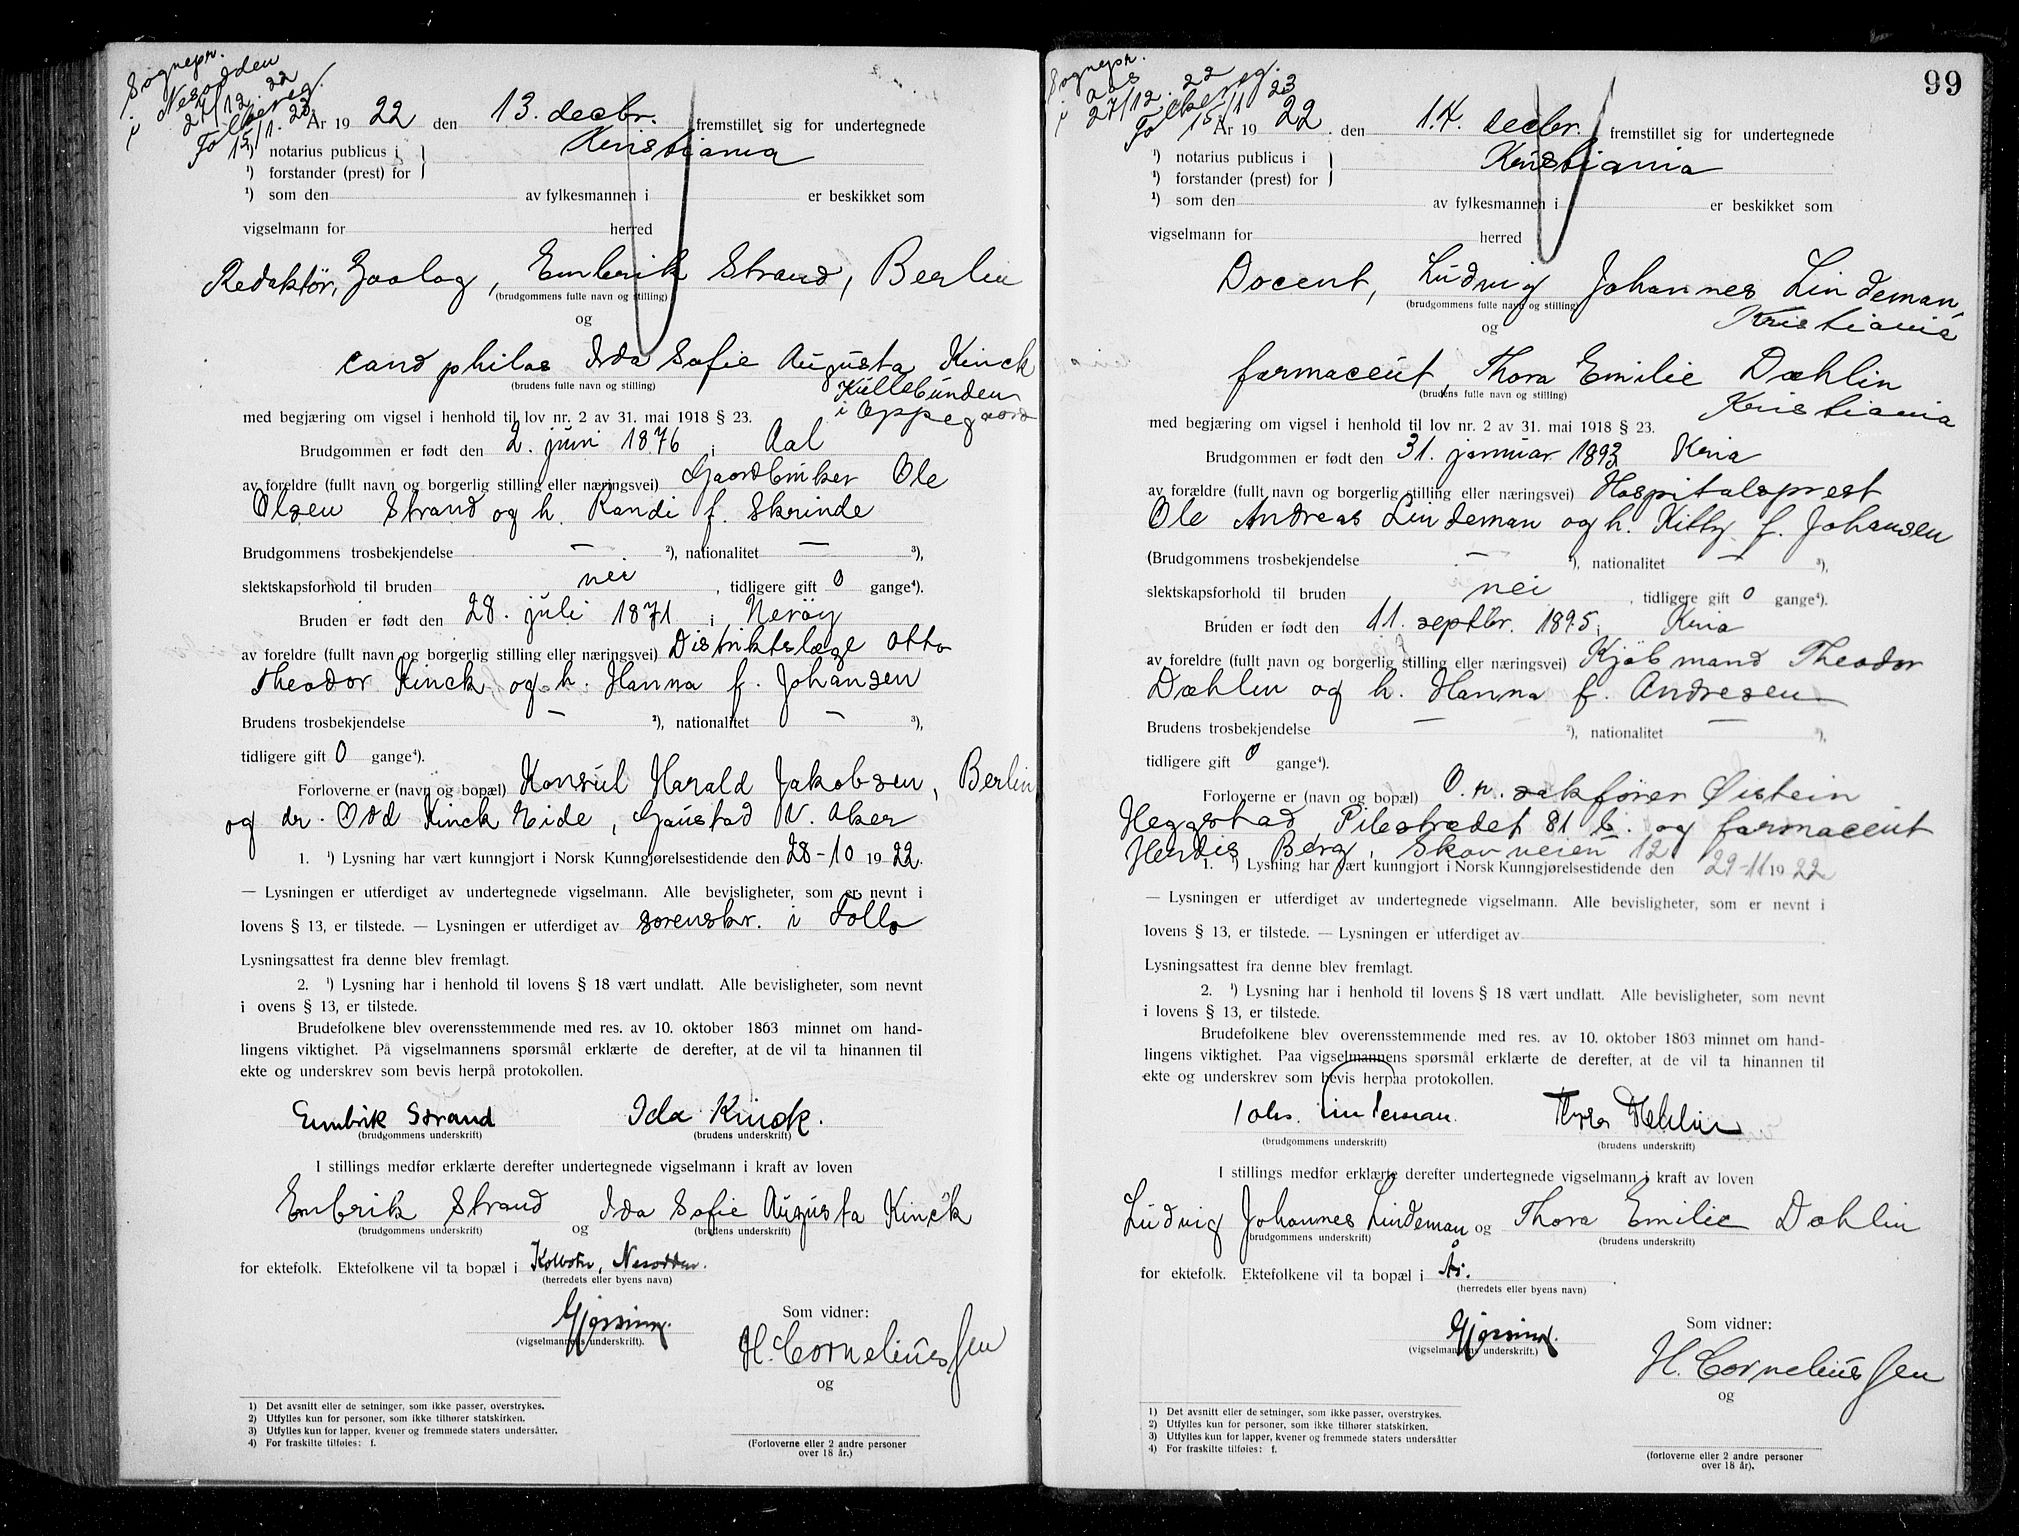 Sognepr.
i Nesodden
27/12. 22
Folkereg.
15/1. 23
År 1922 den 13. decbr. fremstillet sig for undertegnede
¹) notarius publicus i Kristiania
¹) forstander (prest) for
¹) som den av fylkesmannen i er beskikket som
vigselmann for herred
Redaktør, Zoolog, Embrik Strand, Berlin
(brudgommens fulle navn og stilling)
og
cand philos Ida Sofie Augusta Kinck
(brudens fulle navn og stilling)
Kullebunden
i Oppegaard
med begjæring om vigsel i henhold til lov nr. 2 av 31. mai 1918 § 23.
Brudgommen er født den 2. juni 1876 i Aal
av foreldre (fullt navn og borgerlig stilling eller næringsvei) Gaardbruker Ole
Olsen Strand og h. Randi f. Skrinde
Brudgommens trosbekjendelse — ²), nationalitet — ³),
slektskapsforhold til bruden nei, tidligere gift 0 gange⁴).
Bruden er født den 28. juli 1871 i Nerøy
av foreldre (fullt navn og borgerlig stilling eller næringsvei) Distriktslæge Otto
Theodor Kinck og h. Hanna f. Johansen
Brudens trosbekjendelse — ²), nationalitet — ³),
tidligere gift 0 gange⁴).
Forloverne er (navn og bopæl) Konsul Harald Jakobsen, Berlin
og dr. Odd Kinck Eide, Gaustad V. Aker
1. ¹) Lysning har vært kunngjort i Norsk Kunngjørelsestidende den 28-10 1922.
— Lysningen er utferdiget av undertegnede vigselmann. Alle bevisligheter, som er nevnt i
lovens § 13, er tilstede. — Lysningen er utferdiget av sorenskr. i Follo
Lysningsattest fra denne blev fremlagt.
2. ¹) Lysning har i henhold til lovens § 18 vært undlatt. Alle bevisligheter, som nevnt
i ovens § 13, er tilstede.
Brudefolkene blev overensstemmende med res. av 10. oktober 1863 minnet om hand-
lingens viktighet. På vigselmannens spørsmål erklærte de derefter, at de vil ta hinannen til
ekte og underskrev som bevis herpå protokollen.
Embrik Strand Ida Kinck.
(brudgommens underskrift) (brudens underskrift)
I stillings medfør erklærte derefter undertegnede vigselmann i kraft av loven
Embrik Strand og Ida Sofie Augusta Kinck
(brudgommens underskrift) (brudens underskrift)
for ektefolk. Ektefolkene vil ta bopæl i Kolbotn, Nesodden.
(herredets eller byens navn)
Gjessing.
(vigselmannens underskrift).
Som vidner:
H. Corneliussen
og
(Forloverne eller 2 andre personer
over 18 år.)
1) Det avsnitt eller de setninger, som ikke passer, overstrykes.
2) Utfylles kun for personer, som ikke tilhører statskirken.
3) Utfylles kun for lapper, kvener og fremmede staters undersåtter.
4) For fraskilte tilføies: f.
99
Sognepr.
i Aas
27/12. 22
Folkereg.
15/1 23
År 1922. den 14. decbr. fremstillet sig for undertegnede
¹) notarius publicus i Kristiania
¹) forstander (prest) for
¹) som den av fylkesmannen i er beskikket som
vigselmann for herred
Docent, Ludvig Johannes Lindeman,
(brudgommens fulle navn og stilling)
Kristiania
og
farmaceut, Thora Emilie Dæhlin
(brudens fulle navn og stilling)
Kristiania
med begjæring om vigsel i henhold til lov nr. 2 av 31. mai 1918 § 23.
Brudgommen er født den 31. januar 1893 Kria
av forældre (fullt navn og borgerlig stilling eller næringsvei) Hospitalsprest
Ole Andreas Lindeman og h. Kitty f. Johansen
(Brudgommens trosbekjendelse — ²), nationalitet — ³),
slektskapsforhold til bruden nei, tidligere gift 0 gange⁴).
Bruden er født den 11. septbr. 1895 i Kria
av foreldre (fullt navn og borgerlig stilling eller næringsvei) Kjøbmand Theodor
Dæhlin og h. Hanna f. Andresen
Brudens trosbekjendelse — ²), nationalitet — ³),
tidligere gift 0 gange⁴).
Forloverne er (navn og bopæl) O. r. sakfører Øistein
Heggstad, Pilestrædet 81 b. og farmaceut
Herdis Berg, Skovveien 12.
1. ¹) Lysning har vært kunngjort i Norsk Kunngjørelsestidende den 29-11 1922
— Lysningen er utferdiget av undertegnede vigselmann. Alle bevisligheter, som er nevnt i
lovens § 13, er tilstede. — Lysningen er utferdiget av
Lysningsattest fra denne blev fremlagt.
2. ¹) Lysning har i henhold til lovens § 18 vært undlatt. Alle bevisligheter, som nevnt
i lovens § 13, er tilstede.
Brudefolkene blev overensstemmende med res. av 10. oktober 1863 minnet om hand-
lingens viktighet. Paa vigselmannens spørsmål erklærte de derefter, at de vil ta hinannen til
ekte og underskrev som bevis herpaa protokollen.
Johs. Lindeman. Thora Dæhlin
(brudgommens underskrift) (brudens underskrift)
I stillings medfør erklærte derefter undertegnede vigselmann i kraft av loven
Ludvig Johannes Lindeman og Thora Emilie Dæhlin
(brudgommens underskrift) (brudens underskrift)
for ektefolk. Ektefolkene vil ta bopæl i Ås.
(herredets eller byens navn)
Gjessing.
(vigselmannens underskrift.)
Som vidner:
H. Corneliussen
og
(forloverne eller 2 andre personer
over 18 år).
1) Det avsnitt eller de setninger, som ikke passer, overstrykes.
2) Utfylles kun for personer, som ikke tilhører statskirken.
3) Utfylles kun for lapper, kvener og fremmede staters undersåtter
4) For fraskilte tilføies: f.